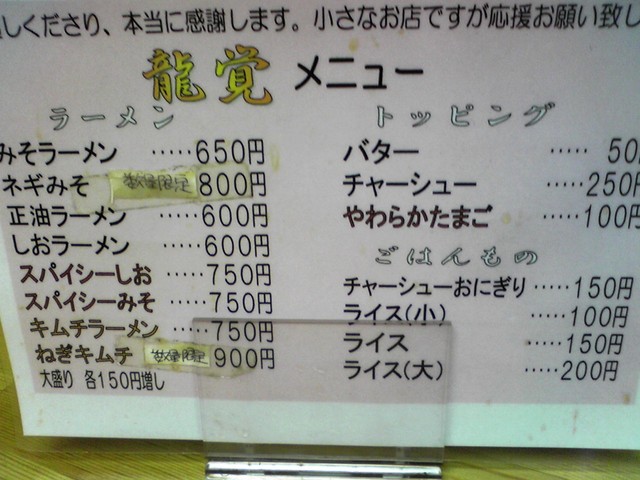 しくださり、本当に感謝します。小さなお店ですが応援お願い致し
龍覚 メニュー
ラーメン
みそラーメン ・・・・・650円
ネギみそ 数量限定 800円
正油ラーメン ・・・・・600円
しおラーメン ・・・・・600円
スパイシーしお ・・・・・750円
スパイシーみそ ・・・・・750円
キムチラーメン ・・・・・750円
ねぎキムチ 数量限定 900円
大盛り 各150円増し
トッピング
バター ・・・・・ 50
チャーシュー ・・・・・250円
やわらかたまご ・・・・・100円
ごはんもの
チャーシューおにぎり ・・・・・150円
ライス(小) ・・・・・100円
ライス ・・・・・150円
ライス(大) ・・・・・200円